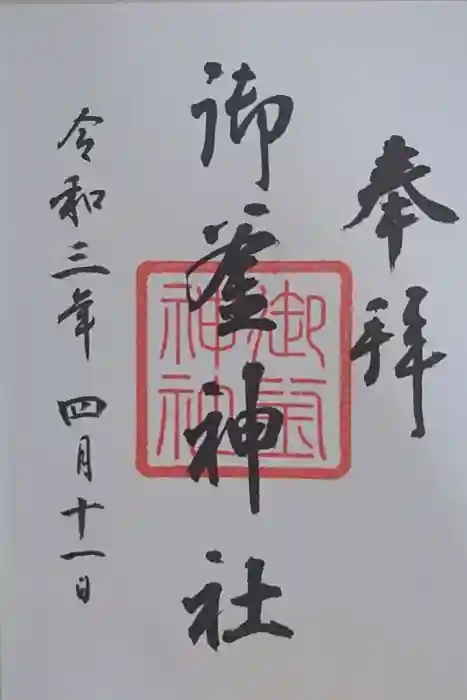 奉拝
御釜神社
御釜神社
令和三年 四月十一日